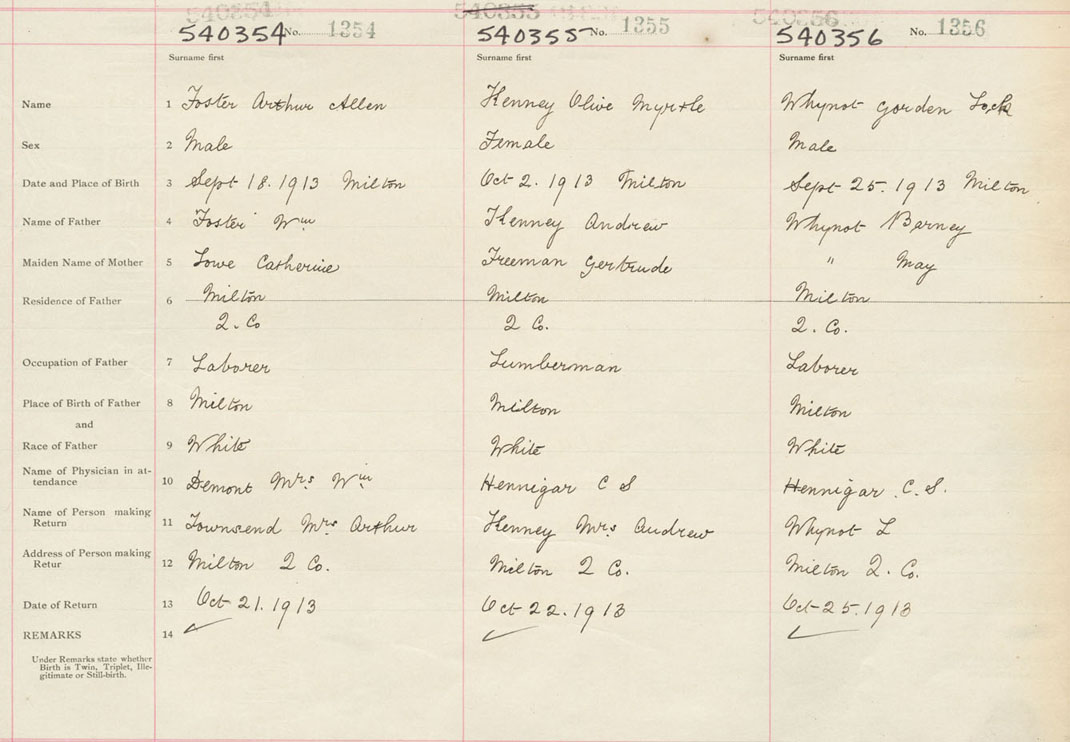 540354 540355 540356
540354 No. 1354 540355 No. 1355 540356 No. 1356
Surname first Surname first Surname first
Name 1 Foster Arthur Allen Kenney Olive Myrtle Whynot Gorden
Sex 2 Male Female Male
Date and Place of Birth 3 Sept 18. 1913 Milton Oct 2. 1913 Milton Sept 25. 1913 Milton
Name of Father 4 Foster Wm Kenney Andrew Whynot Barney
Maiden Name of Mother 5 Lowe Catherine Freeman Gertrude " May
Residence of Father 6 Milton Milton Milton
Q. Co Q Co. Q. Co.
Occupation of Father 7 Laborer Lumberman Laborer
Place of Birth of Father 8 Milton Milton Milton
and
Race of Father 9 White White White
Name of Physician in at-
tendance 10 Demont Mrs Wm Hennigar C S Hennigar . C. S.
Name of Person making
Return 11 Townsend Mrs Arthur Kenney Mrs Andrew Whynot L
Address of Person making
Retur 12 Milton Q Co. Milton Q Co. Milton Q. Co.
Date of Return 13 Oct 21. 1913 Oct 22. 1913 Oct 25. 1913
REMARKS 14
Under Remarks state whether
Birth is Twin, Triplet, Ille-
gitimate or Still-birth.